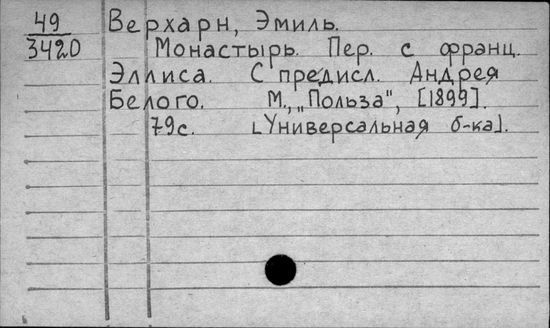 49
3420
Верхарн, Эмиль.
Монастырь. Пер. с франц.
Эллиса. С предисл. Андрея
Белого. М., „Польза", [1899].
79с. [Универсальная б-ка].